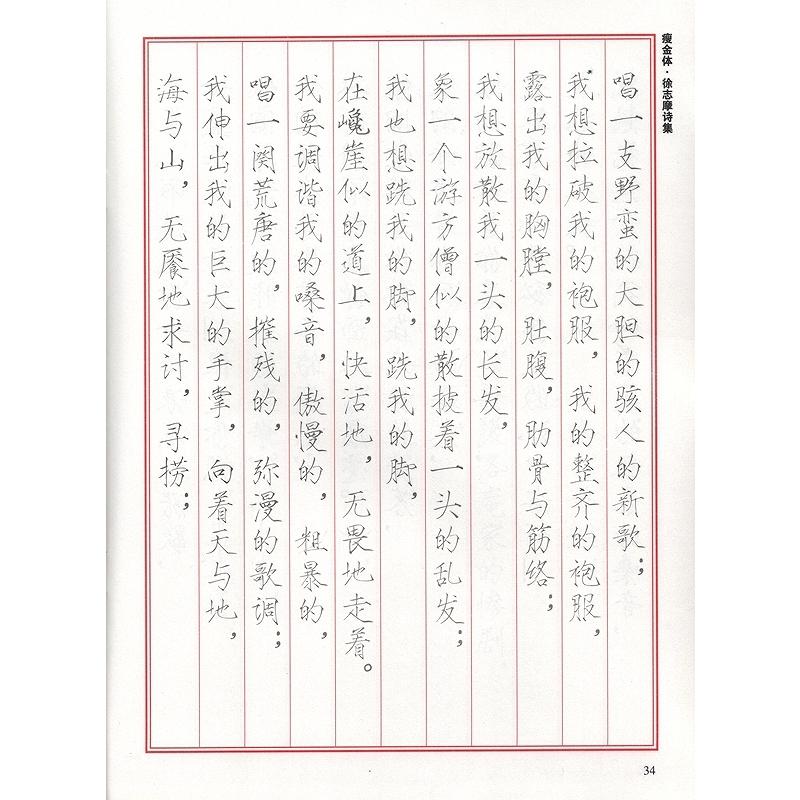 瘦金体·徐志摩诗集
唱一支野蛮的大胆的骇人的新歌；
我想拉破我的袍服，我的整齐的袍服，
露出我的胸膛，肚腹，肋骨与筋络；
我想放散我一头的长发，
象一个游方僧似的散披着一头的乱发；
我也想跣我的脚，跣我的脚，
在巉崖似的道上，快活地，无畏地走着。
我要调谐我的嗓音，傲慢的，粗暴的，
唱一阕荒唐的，摧残的，弥漫的歌调；
我伸出我的巨大的手掌，向着天与地，
海与山，无餍地求讨，寻捞；
34